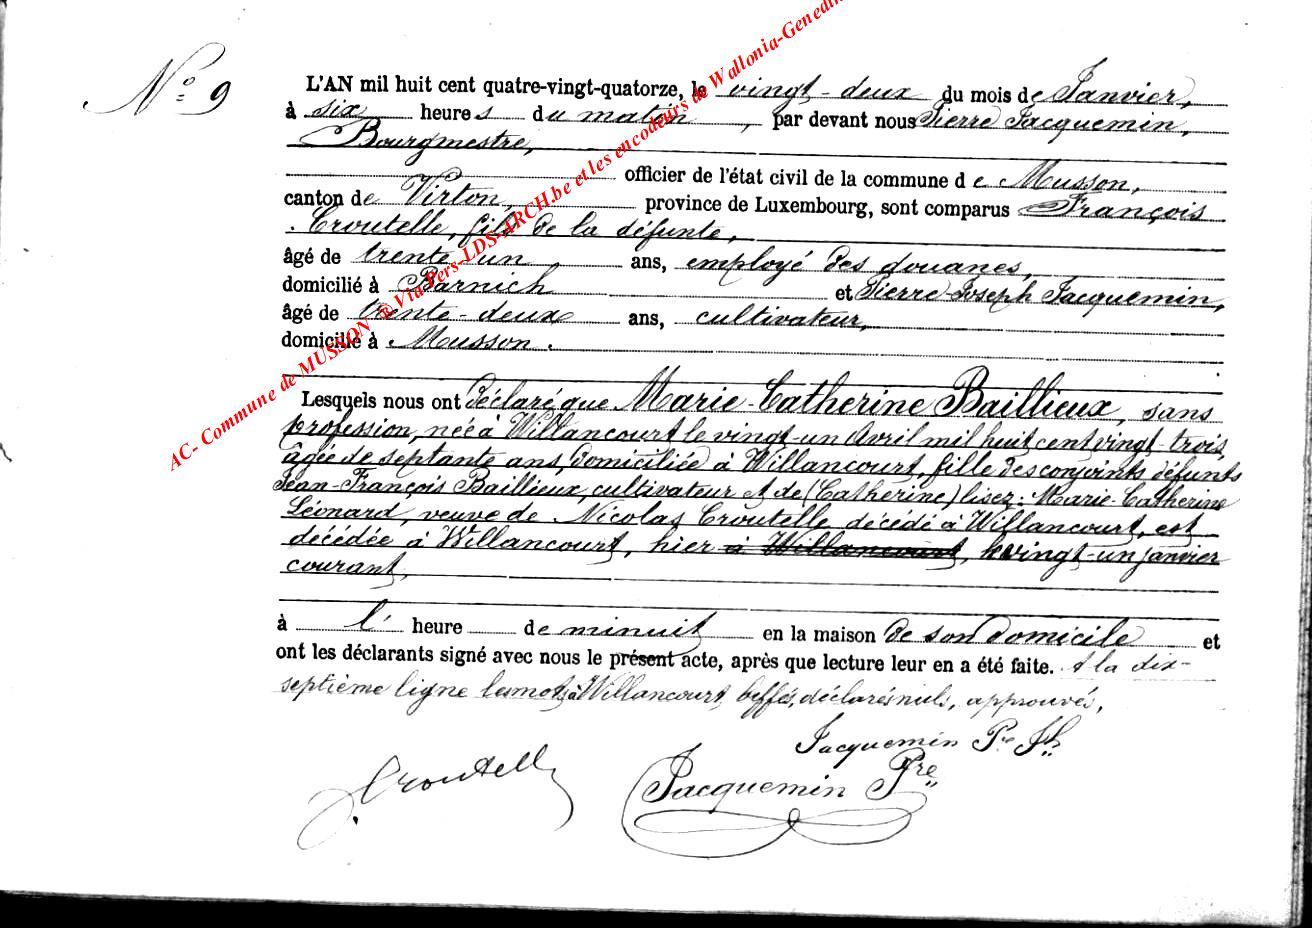 N° 9
L'AN mil huit cent quatre-vingt-quatorze, le vingt-deux du mois de Janvier,
à six heures du matin, par devant nous Pierre Jacquemin,
Bourgmestre,
officier de l'état civil de la commune de Musson,
canton de Virton, province de Luxembourg, sont comparus François
Croutelle, fils de la défunte,
âgé de trente un ans, employé des douanes,
domicilié à Barnich et Pierre-Joseph Jacquemin,
âgé de trente-deux ans, cultivateur,
domicilié à Musson.
Lesquels nous ont déclaré que Marie-Catherine Baillieux, sans
profession, née à Willancourt le vingt-un Avril mil huit cent vingt-trois,
âgée de septante ans, domiciliée à Willancourt, fille des conjoints défunts
Jean-François Baillieux, cultivateur et de (Catherine) lisez: Marie-Catherine
Léonard, veuve de Nicolas Croutelle, décédé à Willancourt, est
décédée à Willancourt, hier à Willancourt, le vingt-un janvier
courant,
à l' heure de minuit en la maison de son domicile et
ont les déclarants signé avec nous le présent acte, après que lecture leur en a été faite. A la dix-
septième ligne les mots à Willancourt biffés, déclarés nuls, approuvés,
Jacquemin Pre Jh
Croutelle
Jacquemin Pre
AC- Commune de MUSSON ® Via Pers-LDS-ARCH.be et les encodeurs de Wallonia-Genedin